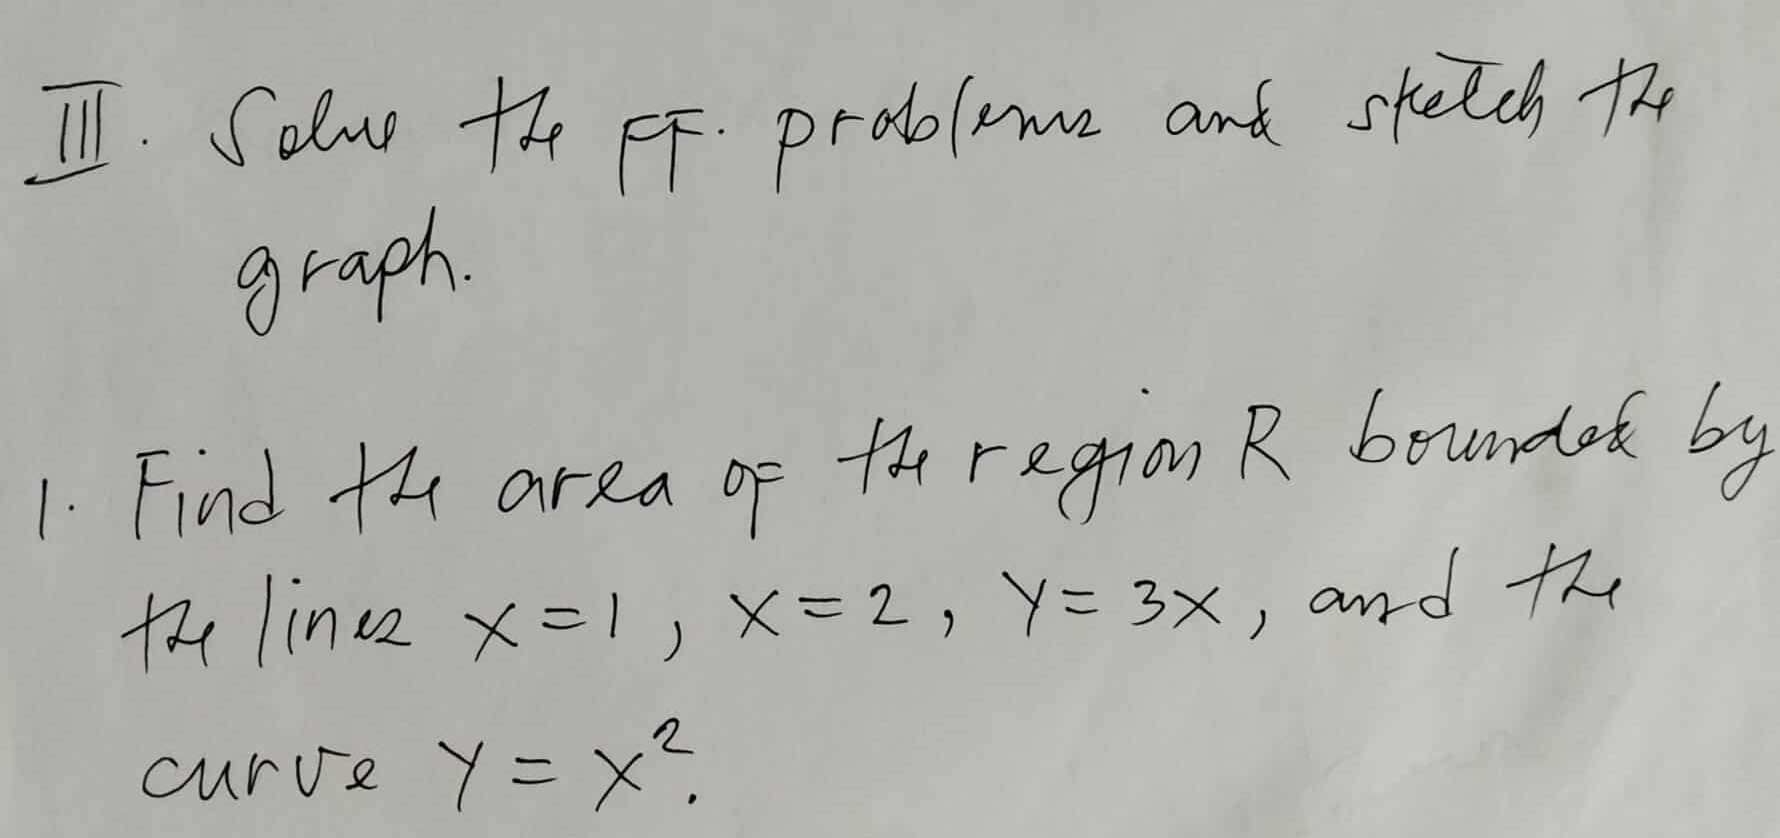 III. Solve the ff. problems and sketch the
graph.
1. Find the area of the region R bounded by
the lines x=1, x=2, y=3x, and the
curve y=x².